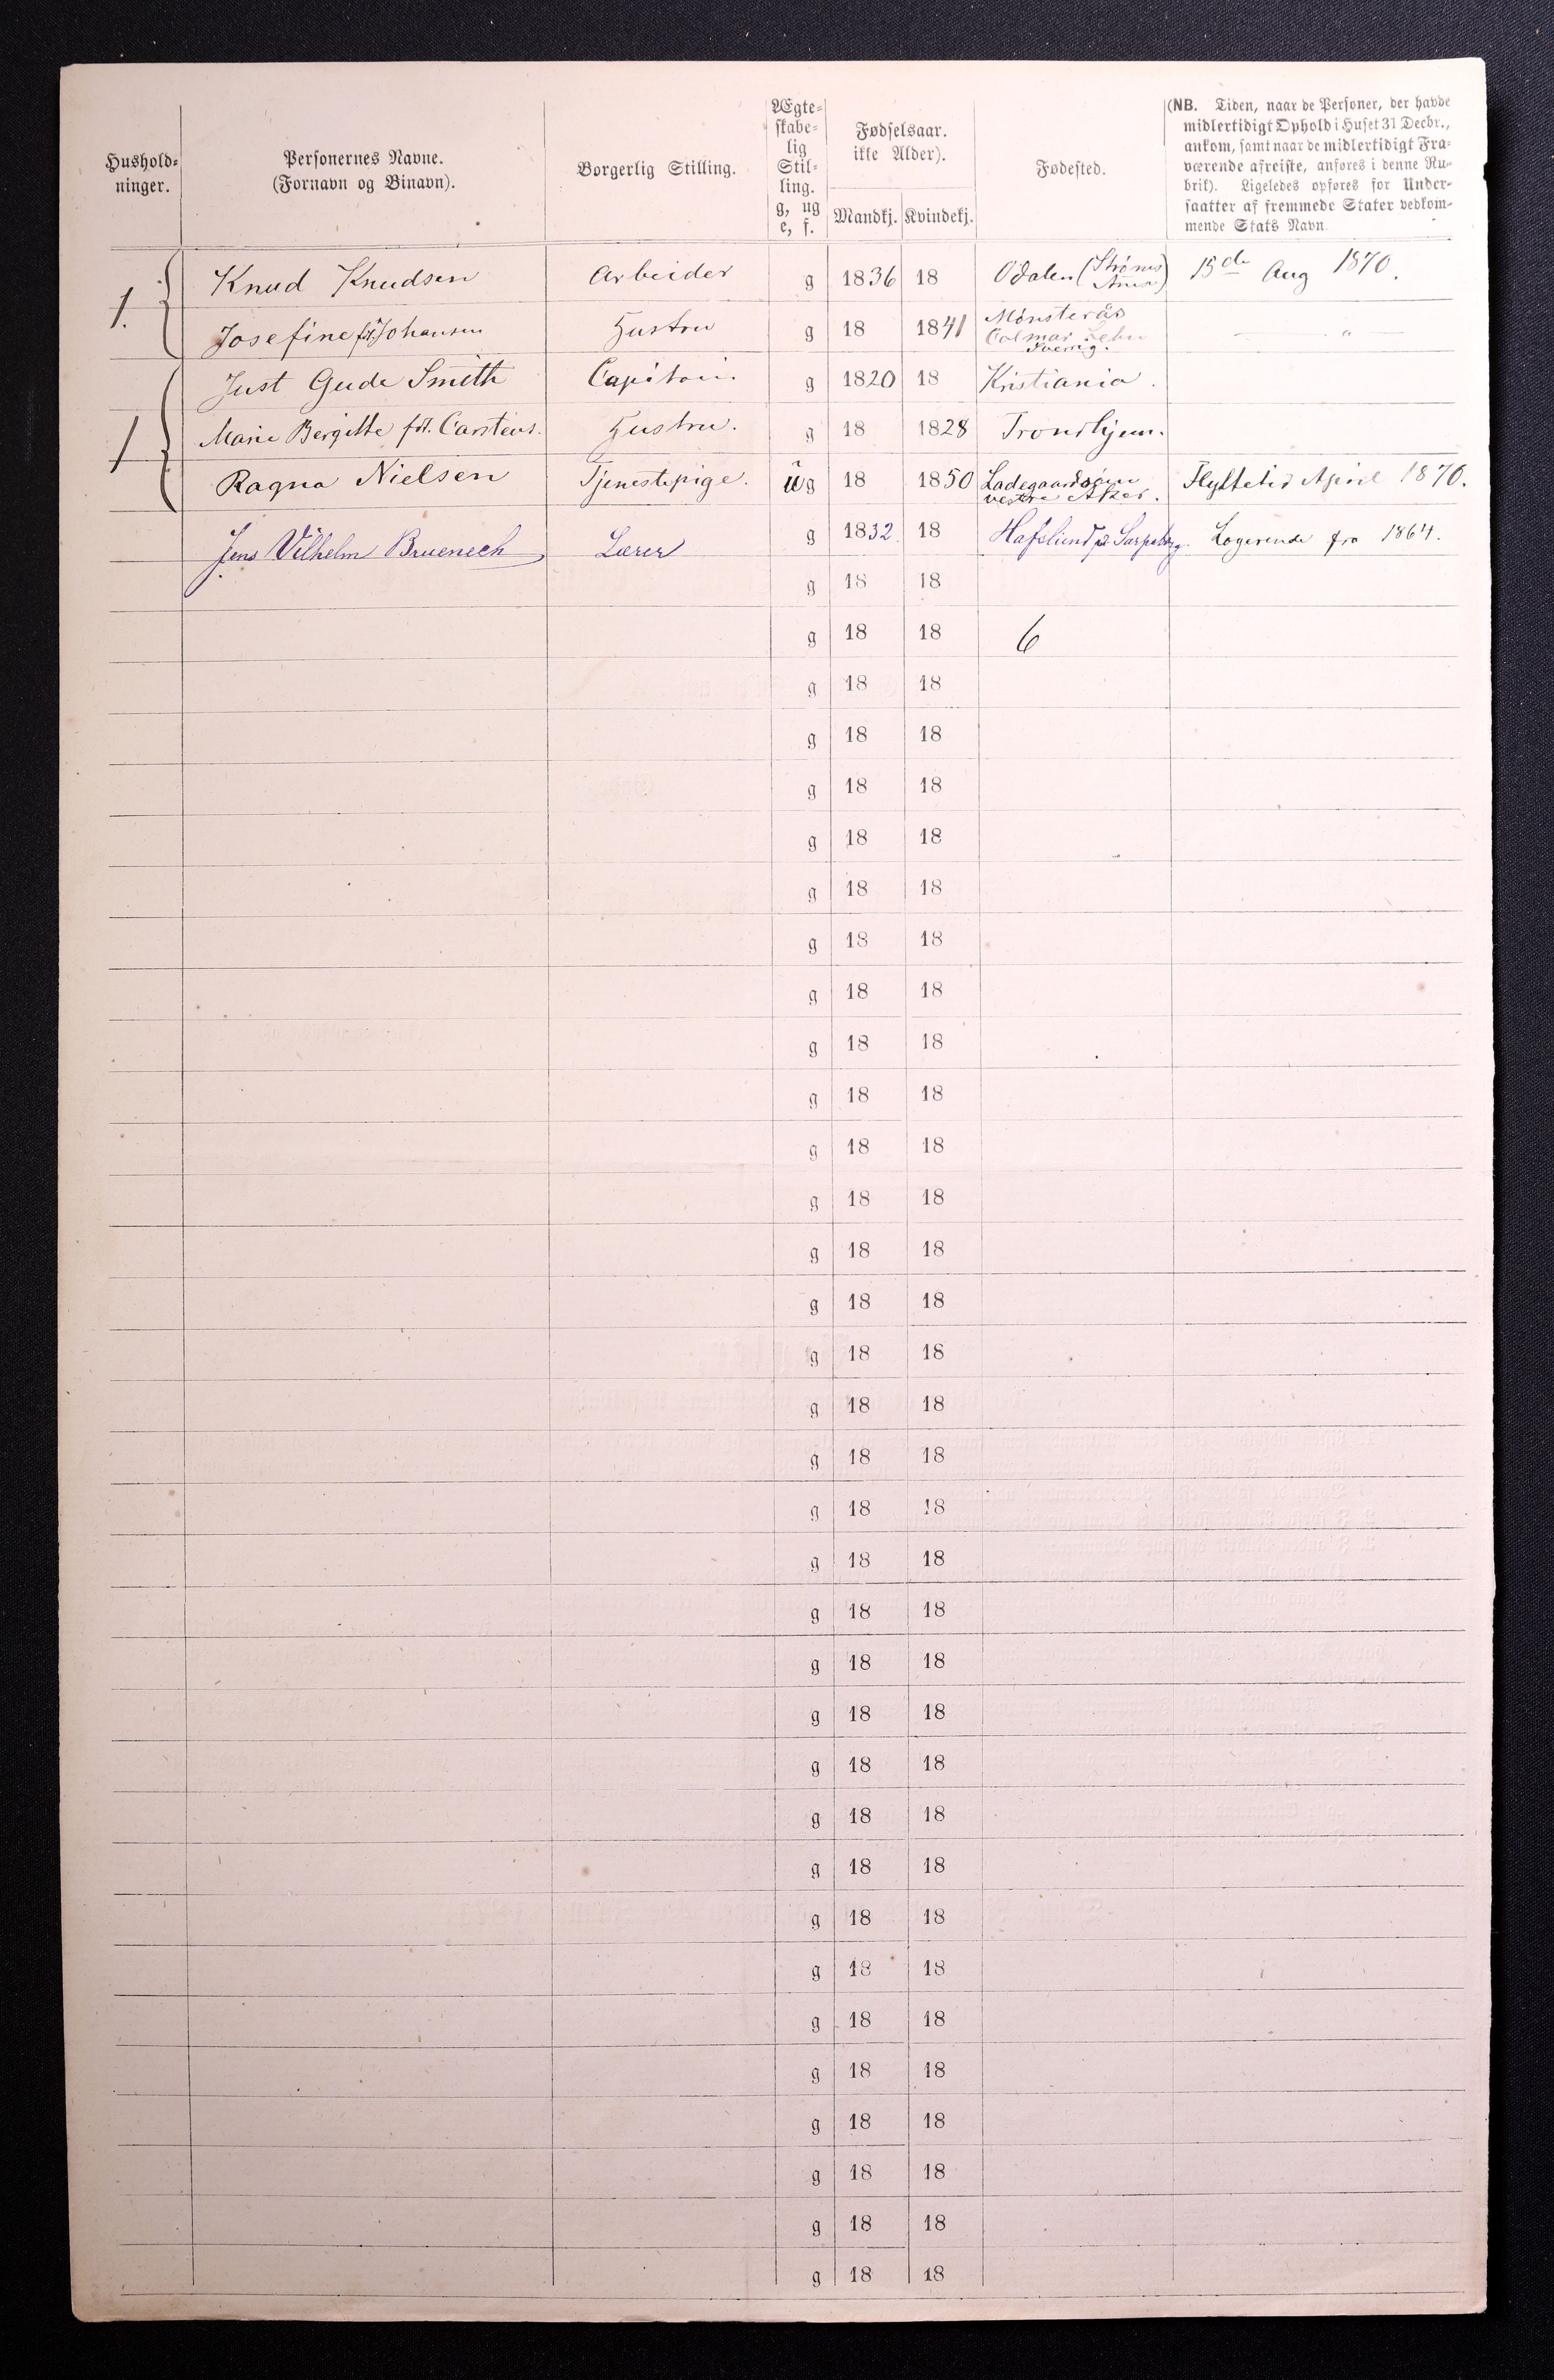 Hushold-
ninger.
Personernes Navne.
(Fornavn og Binavn).
Borgerlig Stilling.
Ægte-
skabe-
lig
Stil-
ling.
g, ug
e, f.
Fødselsaar.
ikke Alder).
Mandkj. Kvindekj.
Fødested.
(NB. Tiden, naar de Personer, der havde
midlertidigt Ophold i Huset 31 Decbr.,
ankom, samt naar de midlertidigt Fra-
værende afreiste, anføres i denne Ru-
brik). Ligeledes opføres for Under-
saatter af fremmede Stater vedkom-
mende Stats Navn.
1. Knud Knudsen Arbeider g 1836 18 Odalen (Strøms 15de Aug 1870.
Josefine fdt Johansen Hustru g 18 1841 Mönsterås
Calmar Lehn
Sverrig. — " —
1 Just Gude Smith Capitain g 1820 18 Kristiania.
Marie Bergitte fdt. Carstens. Hustru. g 18 1828 Trondhjem.
Ragna Nielsen Tjenestepige. ug 18 1850 Ladegaardsøen
vestre Aker. Flyttetid April 1870.
Jens Vilhelm Bruenech Lærer g 1832. 18 Hafslund pr Sarpsborg. Logerende fra 1864.
g 18 18
g 18 18 6
g 18 18
g 18 18
g 18 18
g 18 18
g 18 18
g 18 18
g 18 18
g 18 18
g 18 18
g 18 18
g 18 18
g 18 18
g 18 18
g 18 18
g 18 18
g 18 18
g 18 18
g 18 18
g 18 18
g 18 18
g 18 18
g 18 18
g 18 18
g 18 18
g 18 18
g 18 18
g 18 18
g 18 18
g 18 18
g 18 18
g 18 18
g 18 18